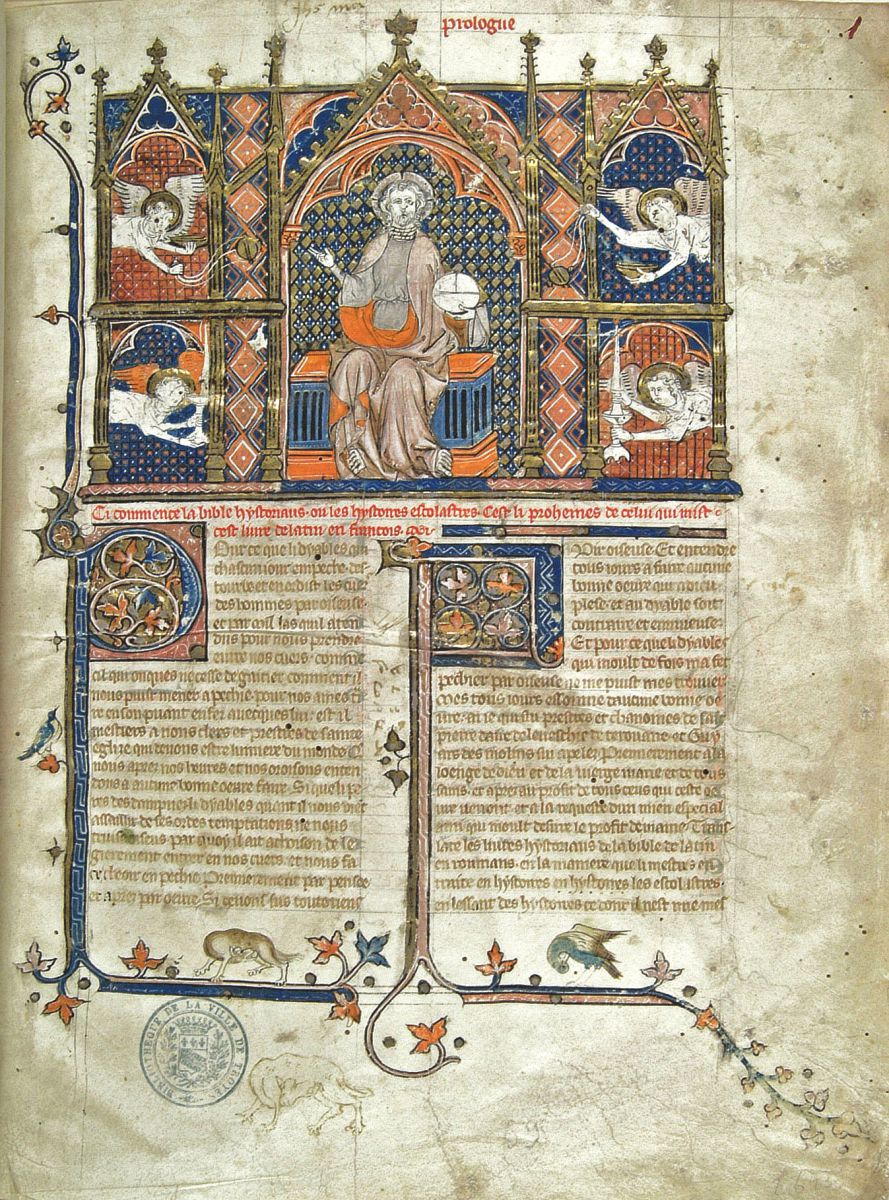 prologue
1
Ci commence la bible hystoriaus. ou les hystoires escolastres. Cest li prohemes de celui qui mist
cest livre de latin en francois.
Pour ce que li dyables qui
chascun iour empeeche. des
tourbe et enordist les cuers
des hommes par oiseuse.
et par mil las quil a ten
dus pour nous prendre
entre nos cuers. comme
cil qui onques ne cesse de gaitier comment il
nous puist mener a pechie pour nos ames ti
rer en son puant enfer avecques lui. est il
mestiers a nous clers et prestres de sainte
eglize qui devons estre lumiere du monde. Q
nous apres nos heures et nos oroisons enten
dons a aucune bonne oevre faire. Si que li pe
res des dampnez li dyables quant il nous viet
assaillir de ses ordes temptacions ne nous
truist oiseus par quoy il ait achoison de le
gierement entrer en nos cuers. et nous fa
ce cheoir en pechie. Premierement par pensee
et apres par oevre. Si devons fuir toutevoies
Oir oiseuse. Et entendre
tous iours a faire aucune
bonne oevre qui a dieu
plese. et au dyable soit
contraire et ennuieuse.
Et pour ce que li dyables
qui moult de fois ma fet
pechier par oiseuse ne me puist mes trouver
mes tous iours essonne daucune bonne oe
vre. ai ie qui sui prestres et chanoines de saint
pierre daire de leveschie de terouane et Guy
ars des molins sui apelez. Premierement a la
loenge de dieu et de la vierge marie et de tous
sains. et apres au profit de tous ceus qui ceste oe
vre verront et a la requeste dun mien especial
ami qui moult desire le profit de mame. Trans
late les livres hystoriaus de la bible de latin
en roumans. en la maniere que li mestres en
traite en hystoires en hystoires les escolastres.
en lessant des hystoires ce dont il nest mie mes
BIBLIOTHEQUE DE LA VILLE DE TROYES